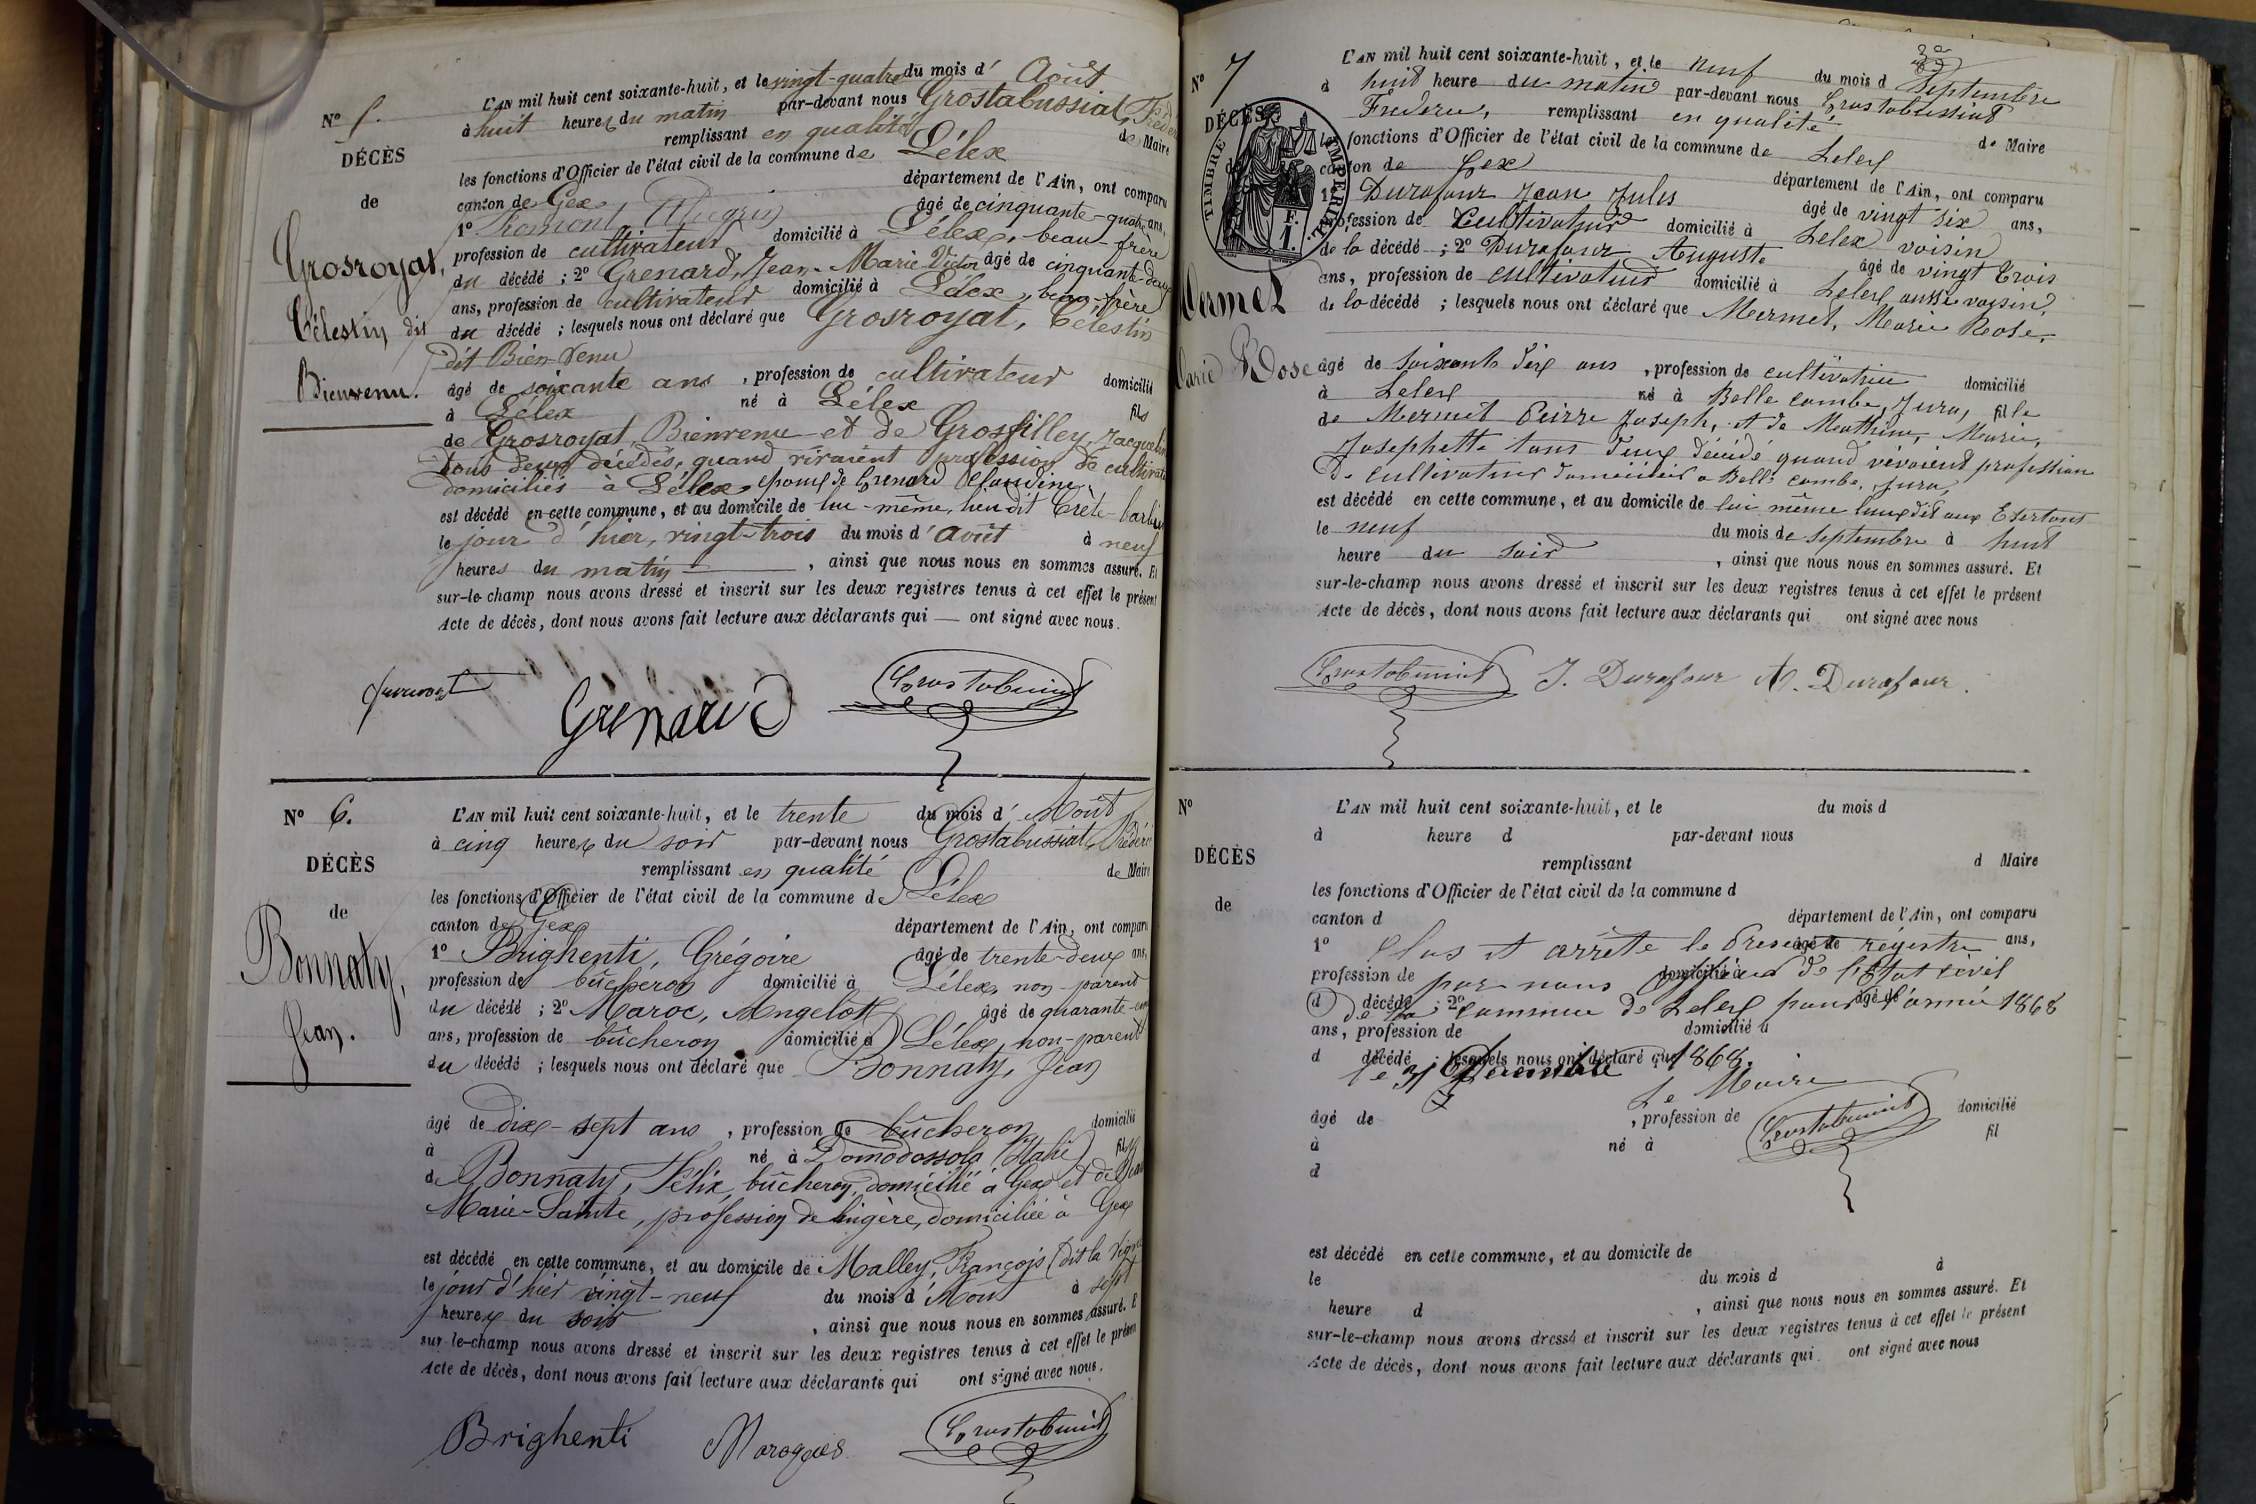 N° 5.
DÉCÈS
de
Grosroyat,
Célestin dit
Bienvenu.
L'AN mil huit cent soixante-huit, et le vingt-quatre du mois d' Août
à huit heures du matin par-devant nous Grostabussiat, Frédéric
remplissant en qualité de Maire
les fonctions d'Officier de l'état civil de la commune de Lélex
canton de Gex département de l'Ain, ont comparu
1° âgé de cinquante-quatre ans,
profession de cultivateur domicilié à Lélex, beau-frère
du décédé ; 2° Grenard, Jean-Marie Victor âgé de cinquante-deux
ans, profession de cultivateur domicilié à Lélex, beau-frère
du décédé ; lesquels nous ont déclaré que Grosroyat, Célestin
dit Bien-Venu
âgé de soixante ans , profession de cultivateur domicilié
à Lélex né à Lélex fils
de Grosroyat, Bienvenu et de Grosfilley, Jacqueline
tous deux décédés, quand vivaient profession de cultivateurs
domiciliés à Lélex, époux de Grenard Claudine.
est décédé en cette commune, et au domicile de lui-même, lieu dit Crête-
le jour d'hier, vingt-trois du mois d' Août à neuf
heures du matin , ainsi que nous nous en sommes assuré. Et
sur-le-champ nous avons dressé et inscrit sur les deux registres tenus à cet effet le présent
Acte de décès, dont nous avons fait lecture aux déclarants qui — ont signé avec nous.
Grenard Grostabussiat
N° 6.
DÉCÈS
de
Bonnaty,
Jean.
L'AN mil huit cent soixante-huit, et le trente du mois d' Août
à cinq heures du soir par-devant nous Grostabussiat, Frédéric
remplissant en qualité de Maire
les fonctions d'Officier de l'état civil de la commune de Lélex
canton de Gex département de l'Ain, ont comparu
1° Brighenti, Grégoire âgé de trente-deux ans,
profession de bûcheron domicilié à Lélex, non-parent
du décédé ; 2° Maroc, Angelot âgé de quarante-
ans, profession de bûcheron domicilié à Lélex, non-parent
du décédé ; lesquels nous ont déclaré que Bonnaty, Jean
âgé de dix-sept ans , profession de bûcheron domicilié
à né à Domodossola (Italie) fils
de Bonnaty, Félix, bûcheron, domicilié à Gex et de
Marie-Sainte, profession de lingère, domiciliée à Gex
est décédé en cette commune, et au domicile de Malley, François (dit la
le jour d'hier vingt-neuf du mois d' Août à sept
heures du soir , ainsi que nous nous en sommes assuré. Et
sur-le-champ nous avons dressé et inscrit sur les deux registres tenus à cet effet le présent
Acte de décès, dont nous avons fait lecture aux déclarants qui ont signé avec nous.
Brighenti Grostabussiat
N° 7
DÉCÈS
TIMBRE IMPERIAL
1 F.
Mermet
Marie Rose
L'AN mil huit cent soixante-huit, et le neuf du mois d Septembre
à huit heure du matin par-devant nous Grostabussiat
Frederic, remplissant en qualité de Maire
les fonctions d'Officier de l'état civil de la commune de Lelex
canton de Gex département de l'Ain, ont comparu
1° Durafour Jean Jules âgé de vingt six ans,
profession de Cultivateur domicilié à Lelex voisin
de la décédé ; 2° Durafour Auguste âgé de vingt trois
ans, profession de cultivateur domicilié à Lelex aussi voisin,
de la décédé ; lesquels nous ont déclaré que Mermet, Marie Rose,
âgé de soixante dix ans , profession de cultivatrice domicilié
à Lelex né à Belle combe, Jura, fille
de Mermet Pierre Joseph, et de Marie,
Josephette tous deux décédé quand vivaient profession
de cultivateur domicilié a Belle combe, Jura,
est décédé en cette commune, et au domicile de lui même
le neuf du mois de septembre à huit
heure du soir , ainsi que nous nous en sommes assuré. Et
sur-le-champ nous avons dressé et inscrit sur les deux registres tenus à cet effet le présent
Acte de décès, dont nous avons fait lecture aux déclarants qui ont signé avec nous
Grostabussiat J. Durafour A. Durafour.
N°
DÉCÈS
de
L'AN mil huit cent soixante-huit, et le du mois d
à heure d par-devant nous
remplissant d Maire
les fonctions d'Officier de l'état civil de la commune d
canton d département de l'Ain, ont comparu
1° âgé de ans,
Clos et arrête le Present régistre
profession de domicilié à
par nous officier de l'Etat civil
d décédé ; 2° âgé de
de la commune de Lelex pour l'année 1868
ans, profession de domicilié à
d décédé ; lesquels nous ont déclaré que
le 31 Décembre 1868.
Le Maire
âgé de , profession de domicilié
Grostabussiat
à né à fil
d
est décédé en cette commune, et au domicile de
le du mois d à
heure d , ainsi que nous nous en sommes assuré. Et
sur-le-champ nous avons dressé et inscrit sur les deux registres tenus à cet effet le présent
Acte de décès, dont nous avons fait lecture aux déclarants qui ont signé avec nous